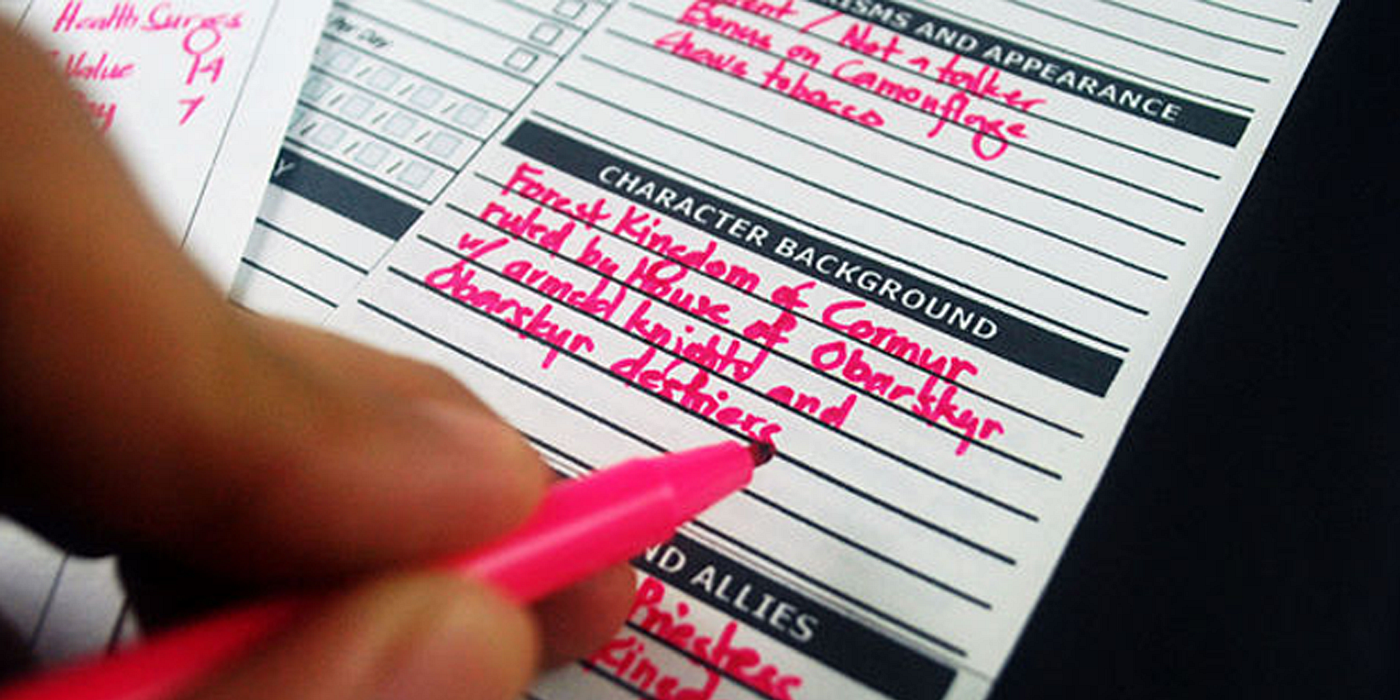 Health Surges
Value 14
7
Per Day
AND APPEARANCE
/ Not a talker
Bonus on Camouflage
chews tobacco
CHARACTER BACKGROUND
Forest Kingdom of Cormyr
ruled by House of Obarskyr
w/ armed knightd and
Obarskyr destriers
ND ALLIES
Priestess